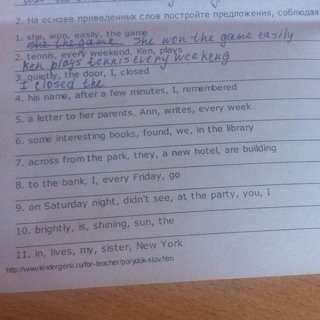 2. На основе приведенных слов постройте предложения, соблюдая
1. she, won, easily, the game
She the game She won the game easily
2. tennis, every weekend, Ken, plays
Ken plays tennis every weekend
3. quietly, the door, I, closed
I closed the
4. his name, after a few minutes, I, remembered
5. a letter to her parents, Ann, writes, every week
6. some interesting books, found, we, in the library
7. across from the park, they, a new hotel, are building
8. to the bank, I, every Friday, go
9. on Saturday night, didn't see, at the party, you, I
10. brightly, is, shining, sun, the
11. in, lives, my, sister, New York